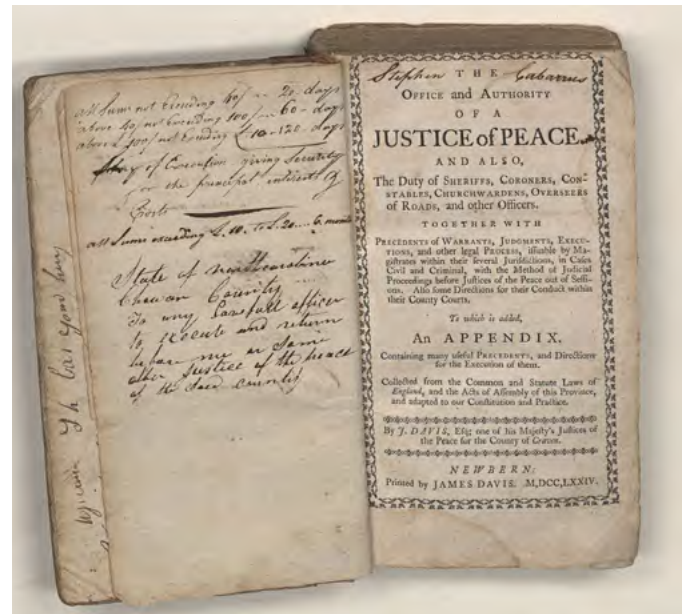 all Sums not Exceeding 40/ — 20 days
above 40/ not Exceeding 100/ — 60 – days
above 100/ not Exceeding £10 – 120 – days
of Execution giving Security
for the principal interest &
Costs
all Sums exceeding £.10. to £.20 6 months
State of
Chowan County
To any Lawfull officer
to execute and return
before me or Some
other Justice of the peace
of the Said County
Stephen THE Cabarrus
OFFICE and AUTHORITY
OF A
JUSTICE of PEACE.
AND ALSO,
The Duty of SHERIFFS, CORONERS, CON-
STABLES, CHURCHWARDENS, OVERSEERS
of ROADS, and other Officers.
TOGETHER WITH
PRECEDENTS of WARRANTS, JUDGMENTS, EXECU-
TIONS, and other legal PROCESS, issuable by Ma-
gistrates within their several Jurisdictions, in Cases
Civil and Criminal, with the Method of Judicial
Proceedings before Justices of the Peace out of Sessi-
ons. Also some Directions for their Conduct within
their County Courts.
To which is added,
An APPENDIX,
Containing many useful PRECEDENTS, and Directions
for the Execution of them.
Collected from the Common and Statute Laws of
England, and the Acts of Assembly of this Province,
and adapted to our Constitution and Practice.
By J. DAVIS, Esq; one of his Majesty's Justices of
the Peace for the County of Craven.
NEWBERN:
Printed by JAMES DAVIS. M,DCC,LXXIV.